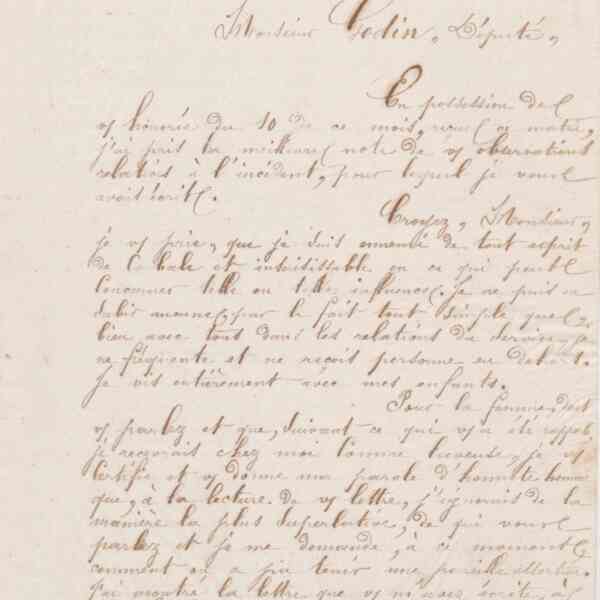 Monsieur Godin, Député,
En possession de
vs honorée du 10 de ce mois, reçue ce matin,
j'ai pris la meilleure note de vs observations
relatives à l'incident, pour lequel je vous
avais écrit.
Croyez, Monsieur,
je vs prie, que je suis ennemi de tout esprit
de Cabale et inaisissable en ce qui peut
concerner telle ou telle influence. Je ne puis en
subir aucune, par le fait tout simple que
bien avec tout dans les relations du service, je
ne fréquente et ne reçoit personne en dehors.
Je vis entièrement avec mes enfants.
Pour la femme, dont
vs parlez et que, suivant ce qui vs a été rapporté
je recevrais chez moi comme buveuse, je vs
Certifie et vs donne ma parole d'honnête homme
que, à la lecture de vs lettre, j'ignorais de la
manière la plus superlative, de qui vous
parlez et je me demande, à ce moment
comment on a pu tenir une pareille assertion.
J'ai montré la lettre que vs m'avez écrite, à